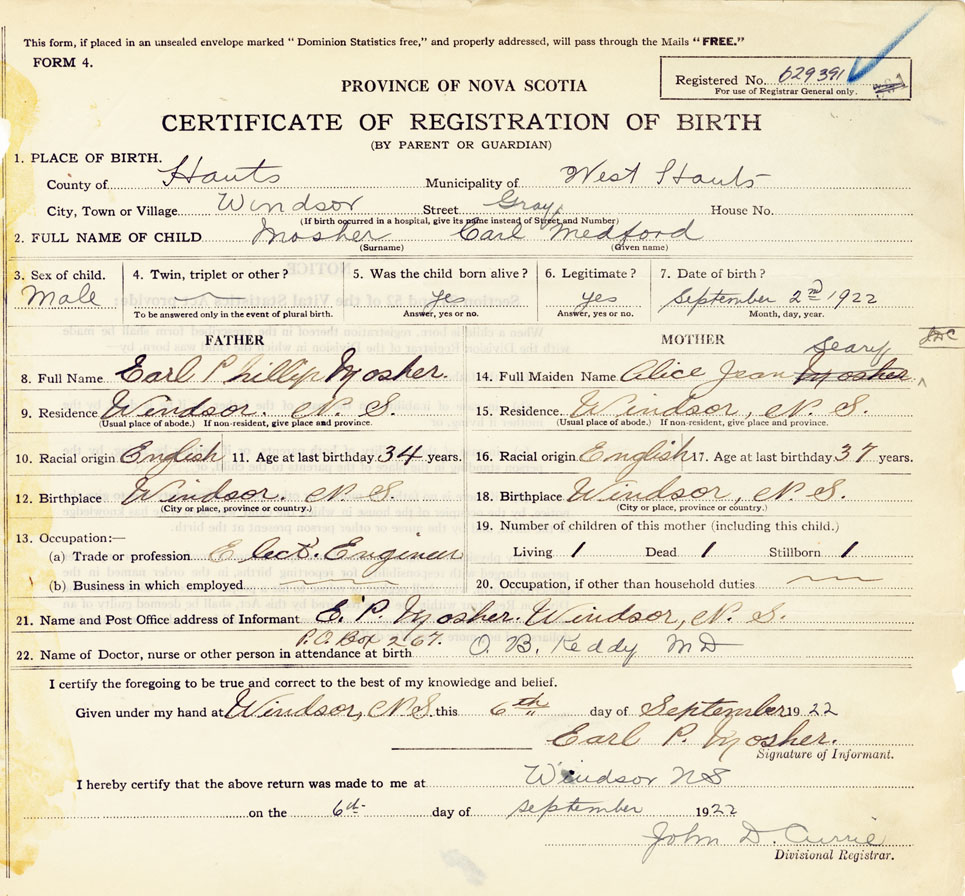 This form, if placed in an unsealed envelope marked "Dominion Statistics free," and properly addressed, will pass through the Mails "FREE."
FORM 4.
Registered No. 629391
For use of Registrar General only.
PROVINCE OF NOVA SCOTIA
CERTIFICATE OF REGISTRATION OF BIRTH
(BY PARENT OR GUARDIAN)
1. PLACE OF BIRTH.
County of Hants Municipality of West Hants
City, Town or Village Windsor Street Gray House No.
(If birth occurred in a hospital, give its name instead of Street and Number)
2. FULL NAME OF CHILD Mosher Carl Medford
(Surname) (Given name)
3. Sex of child. 4. Twin, triplet or other? 5. Was the child born alive? 6. Legitimate? 7. Date of birth?
Male yes yes September 2nd 1922
To be answered only in the event of plural birth. Answer, yes or no. Answer, yes or no. Month, day, year.
FATHER MOTHER
Seary
8. Full Name Earl Phillip Mosher. 14. Full Maiden Name Alice Jean Mosher
9. Residence Windsor. N. S. 15. Residence. Windsor, N. S.
(Usual place of abode.) If non-resident, give place and province. (Usual place of abode.) If non-resident, give place and province.
10. Racial origin English 11. Age at last birthday 34 years. 16. Racial origin English 17. Age at last birthday 37 years.
12. Birthplace Windsor. N. S. 18. Birthplace Windsor, N. S.
(City or place, province or country.) (City or place, province or country.)
13. Occupation:— 19. Number of children of this mother (including this child.)
(a) Trade or profession Elect. Engineer Living 1 Dead 1 Stillborn 1
(b) Business in which employed 20. Occupation, if other than household duties
21. Name and Post Office address of Informant E. P. Mosher. Windsor, N. S.
P.O. Box 267.
22. Name of Doctor, nurse or other person in attendance at birth O. B. Keddy MD
I certify the foregoing to be true and correct to the best of my knowledge and belief.
Given under my hand at Windsor, N.S. this 6th day of September 1922
Earl P. Mosher.
Signature of Informant.
I hereby certify that the above return was made to me at Windsor NS
on the 6th day of September 1922
John D. Currie
Divisional Registrar.